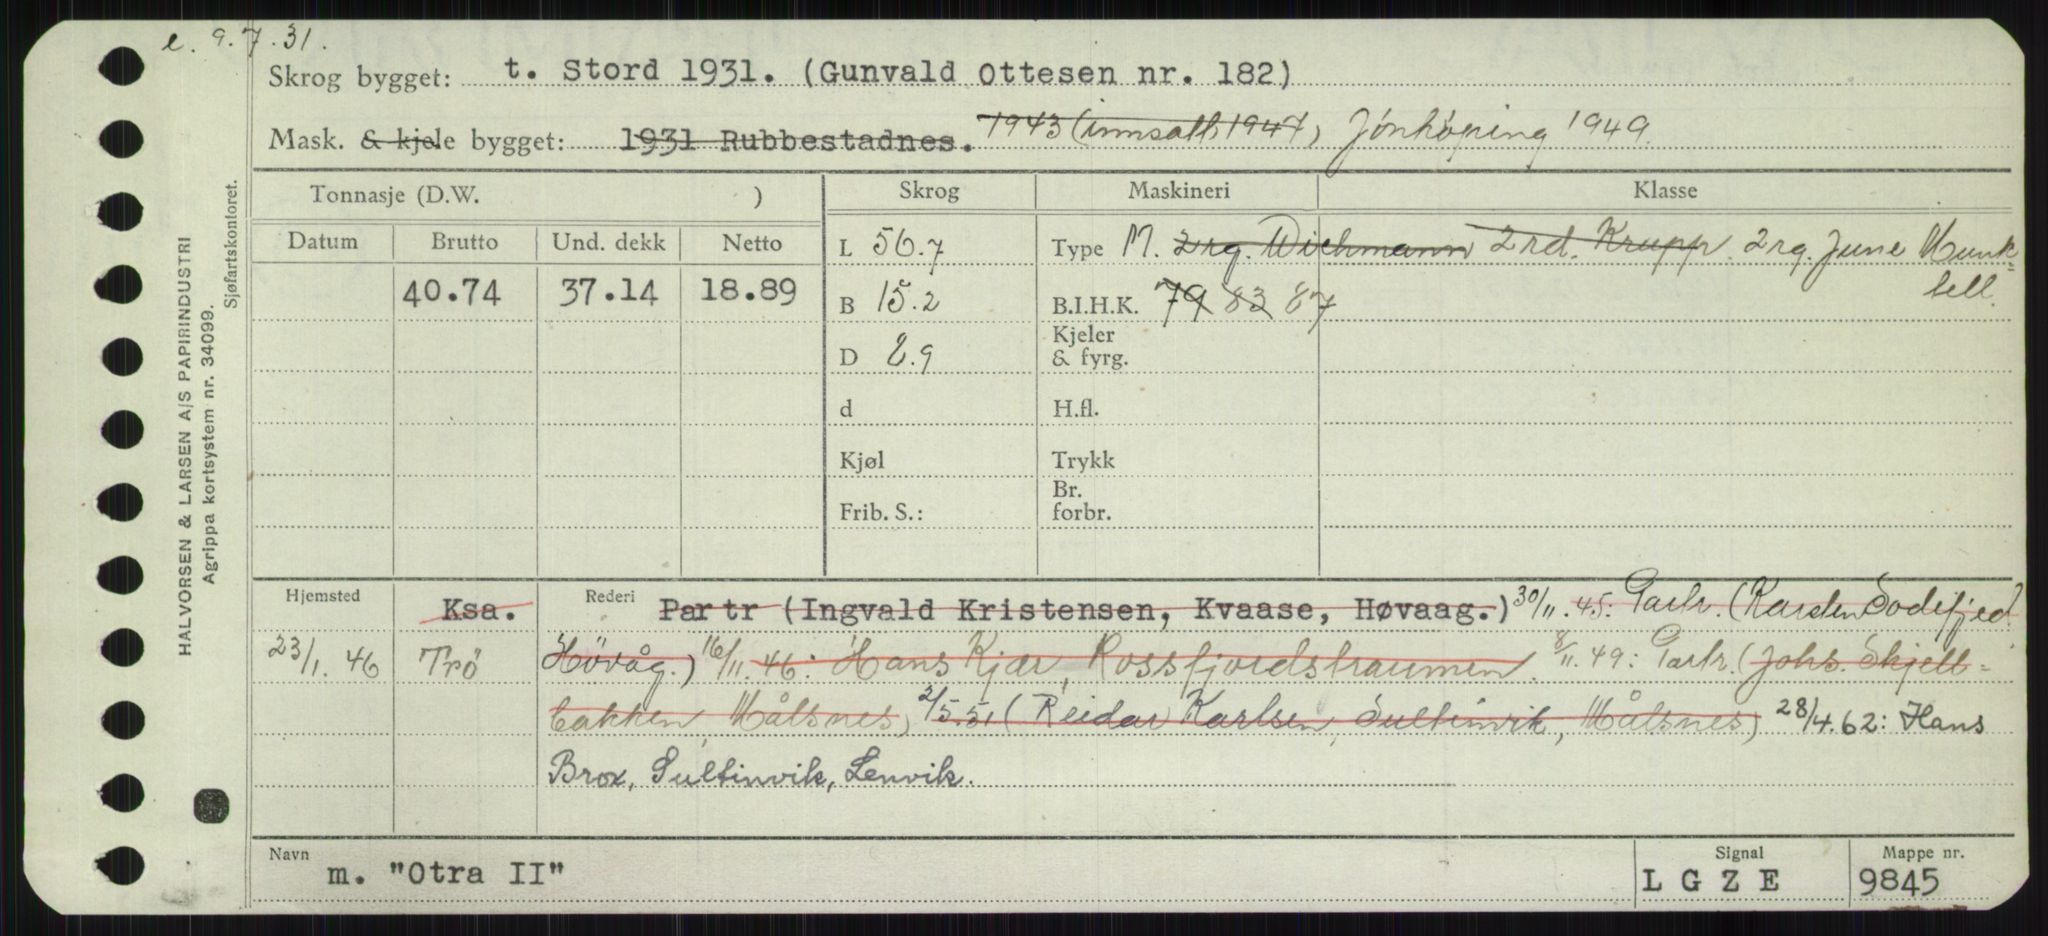 e. 9.7.31.
Skrog bygget: t. Stord 1931. (Gunvald Ottesen nr. 182)
Mask. & kjele bygget: 1931 Rubbestadnes. 1943 (innsatt 1947) Jönköping 1949.
Tonnasje (D.W. ) Skrog Maskineri Klasse
Datum Brutto Und. dekk Netto L 56.7 Type M. 2rg. Wichmann 2rd. Krupp. 2rg. June Munk=
40.74 37.14 18.89 B 15.2 B.I.H.K. 79 83 87 tell.
D 8.9 Kjeler
& fyrg.
d H.fl.
Kjøl Trykk
Frib. S.: Br.
forbr.
Hjemsted Ksa. Rederi Partr (Ingvald Kristensen, Kvaase, Høvaag.) 30/11.45: Partr. (Karsten
23/1.46 Trö Hövåg.) 16/11.46: Hans Kjær, Rossfjordstraumen. 8/11.49: Partr. (Johs. Skjell=
bakken, Målsnes) 2/5.51 (Reidar Karlsen, Sultinvik, Målsnes) 28/4.62: Hans
Brox, Sultinvik, Lenvik.
Navn m. "Otra II" Signal LGZE Mappe nr. 9845
HALVORSEN & LARSEN A/S PAPIRINDUSTRI
Agrippa kortsystem nr. 34099.
Sjøfartskontoret.